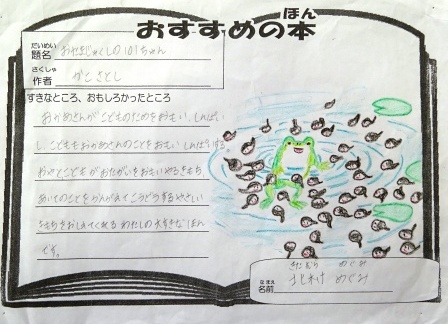 ほん
おすすめの本
だいめい
題名 おたまじゃくしの101ちゃん
さくしゃ
作者 かこさとし
すきなところ、おもしろかったところ
おかあさんがこどものためをおもい、しんぱい
し、こどももおかあさんのことをおもい しんぱいする。
おやとこどもがおたがいをおもいやるきもち、
あいてのことをかんがえてこうどうするやさしい
きもちをおしえてくれる わたしの大すきなほん
です。
なまえ
名前 めぐみ
めぐみ